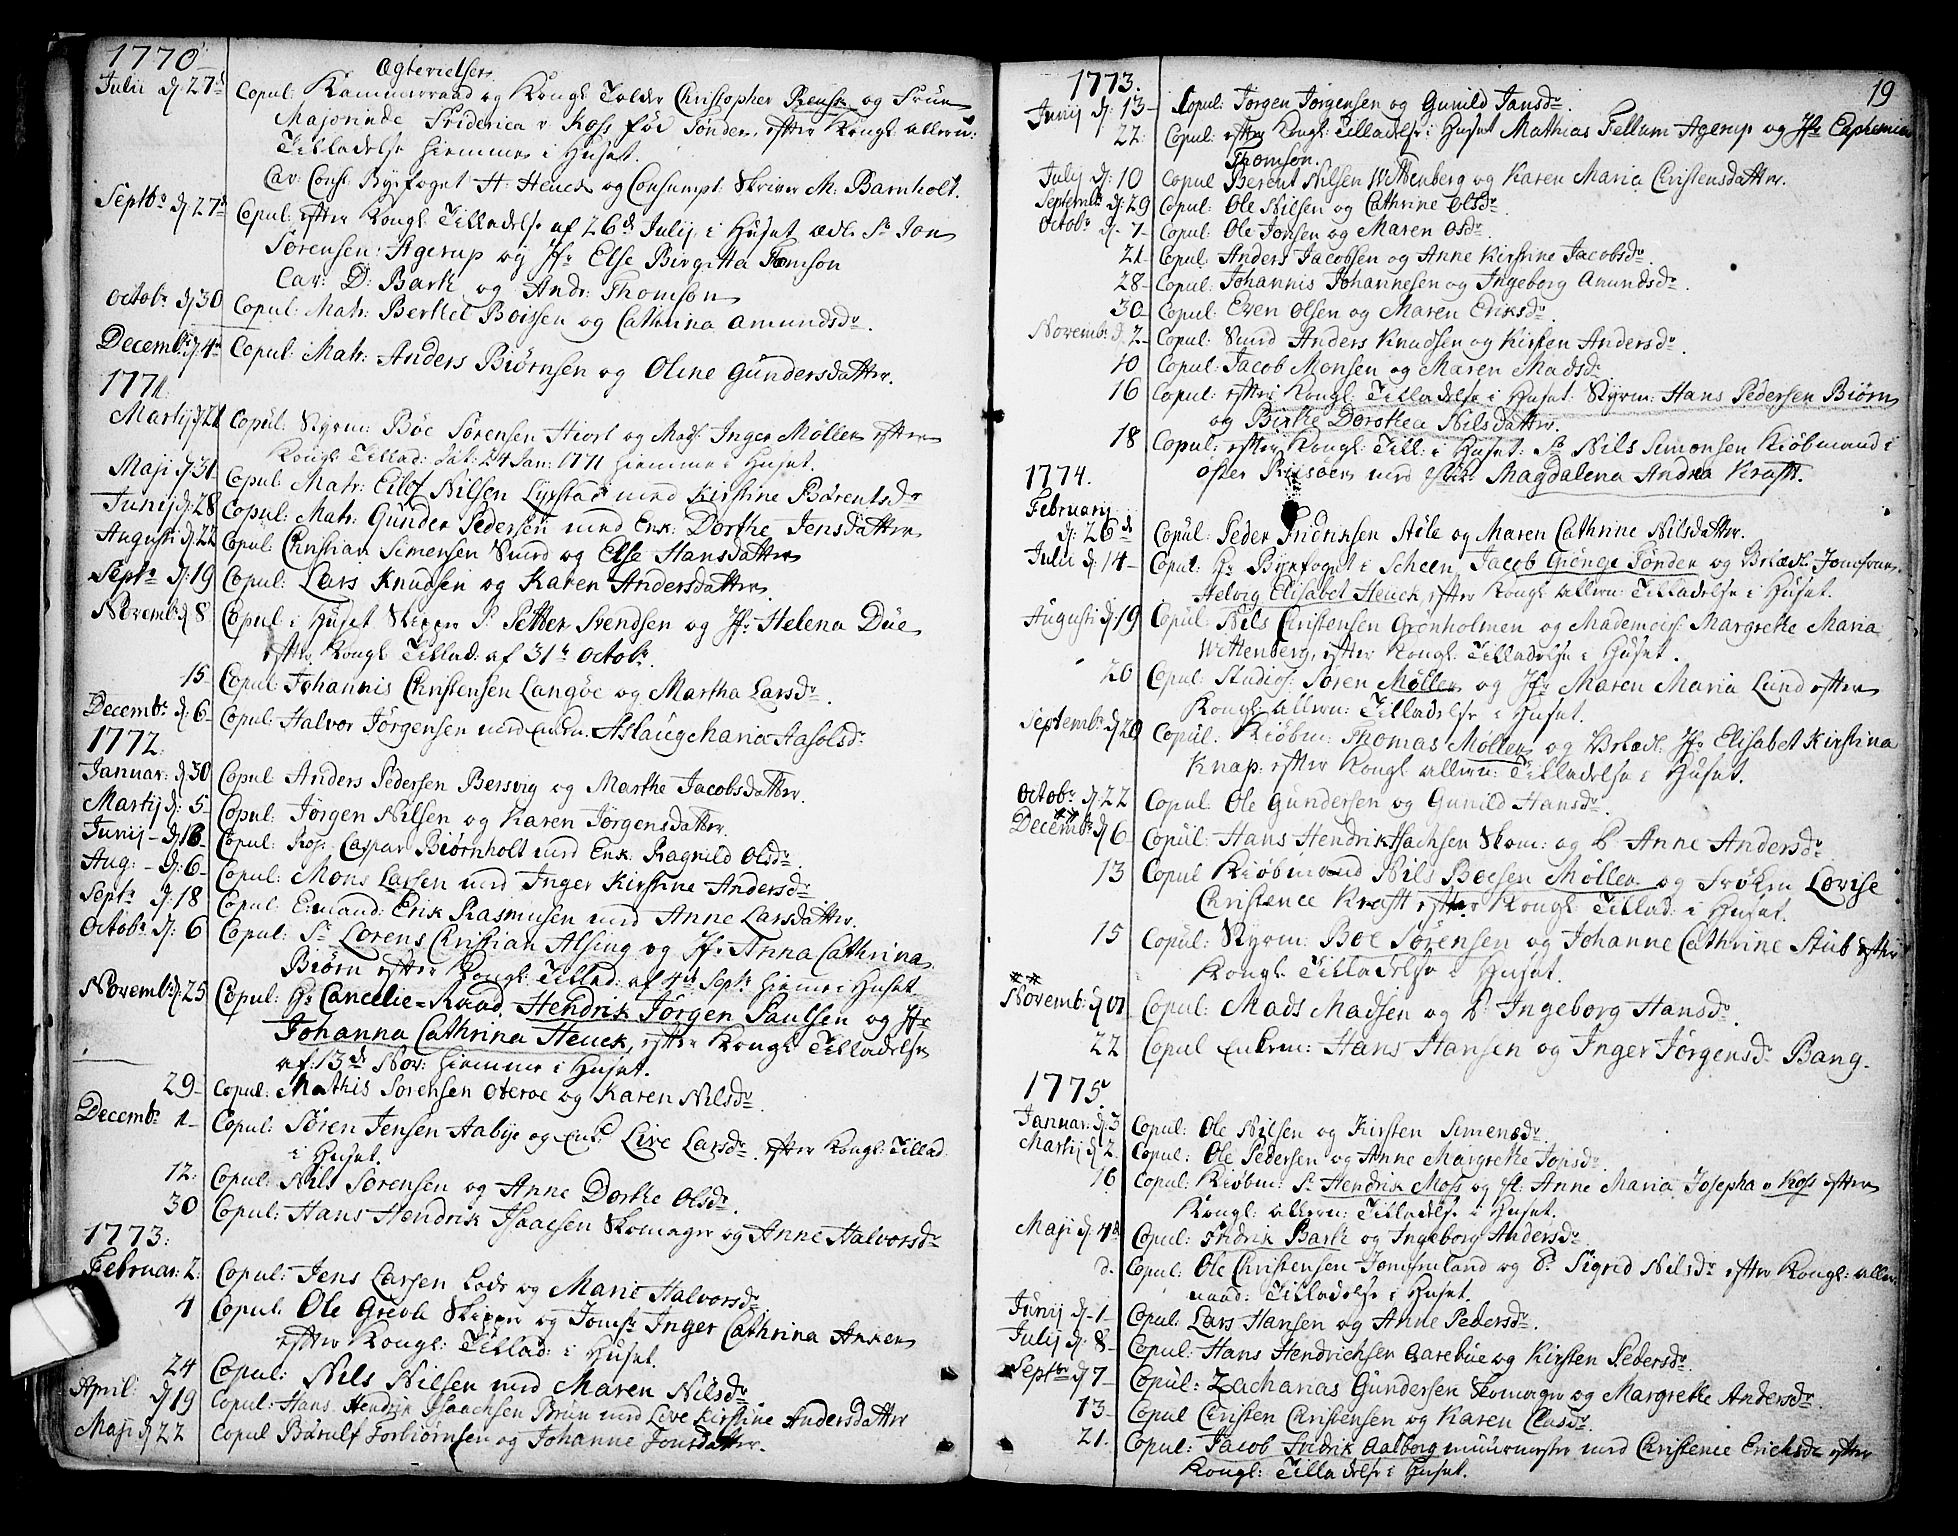 1770
Ægtevielser
Julii d: 27d Copul: Kammerraad og Kongl: Tolder Christopher og Frue
Majorinde Friderica v: Koss fød Tønder, efter Kongl: allern:
Tilladelse hiemme i Huset.
Cav: Byefoget H: Heuch og Consumpt: Skriver M: Barnholt.
Septbr d 27d Copul: efter Kongl: Tilladelse af 26d Julij i Huset Sr Jon
Sørensen Agerup og Jfr Else Birgitta Thomson
Cav: D: Bark og Andr: Thomson
Octobr d 30 Copul: Matr: Berthel Boissen og Cathrina Amundsdr.
Decembr d 4d Copul: Matr: Anders Biørnsen og Oline Gundersdatter.
1771.
Martij d 21 Copul: Styrm: Böe Sørensen Hiort og Mad: Inger Møller efter
Kongl: Tillad: dat: 24 Jan: 1771 hiemme i Huset.
Maji d 31 Copul: Matr: Nilsen med Kirstine Bærentsdr
Junij d: 28 Copul: Matr: Gunder Pedersen med Enk: Dorthe Jensdatter
Augusti d: 22 Copul: Christian Simensen Smed og Else Hansdatter
Septr d: 19 Copul: Lars Knudsen og Karen Andersdatter.
Novembr d 8 Copul: i Huset Skipper Sr Petter Svendsen og Jfr Helena Düe
efter Kongl: Tillad: af 31te Octobr.
15 Copul: Johannis Christensen Langöe og Martha Larsdr.
Decembr d: 6 Copul: Halvor Jørgensen med Aslaug Maria Aasolsdr
1772.
Januar: d: 30 Copul: Anders Pedersen Bersvig og Marthe Jacobsdatter.
Martij d: 5 Copul: Jørgen Nilsen og Karen Jørgensdatter.
Junij d 18 Copul: Caspar Biørnholt med Enk: Ragnild Olsdr.
Aug: d: 6 Copul: Mons Larsen med Inger Kirstine Andersdr
Septr d: 18 Copul: Erik Rasmusen med Anne Larsdatter.
Octobr d: 6 Copul: Sr Lorens Christian Alsing og Jfr Anna Cathrina
Biørn efter Kongl: Tillad: af 4de Septr hiemme i Huset
Novembr d: 25 Copul: Hr Cancelie-Raad Hendrik Jørgen Paulsen og Jfr
Johanna Cathrina Heuch, efter Kongl: Tilladelse
af: 13d Nov: hiemme i Huset.
29 Copul: Mathis Sørensen Oterøe og Karen Nilsdr.
Decembr 1 Copul: Søren Jensen Aabye og Live Larsdr. efter Kongl: Tillad
i Huset.
12: Copul: Nils Sørensen og Anne Dorthe Olsdr.
30 Copul: Hans Hendrik Isaacsen Skomager og Anne Halvorsdr
1773:
Februar: 2: Copul: Jens Larsen Lods og Marie Halvorsdr.
4 Copul: Ole Skipper og Jomfr Inger Cathrina Anker
efter Kongl: Tillad: i Huset.
24 Copul: Nils Nilsen med Maren Nilsdr.
April: d 19 Copul: Hans Hendrik Isaachsen Brun med Live Kirstine Andersdatter
Maji d 22 Copul Torbiørnsen og Johanne Jonsdatter.
19
1773.
Junij d: 13 Copul: Jørgen Jørgensen og Gunild Jansdr.
22 Copul: efter Kongl: Tilladelse i Huset Mathias Fellum Agerup og Jfr Euphemia
Thomson.
Julij d: 10 Copul Berent Nilsen Wittenberg og Karen Maria Christensdatter.
Septembr d: 29 Copul: Ole Nilsen og Cathrine Olsdr.
Octobr d. 7 Copul: Ole Jonsen og Maren Osdr.
21 Copul: Anders Jacobsen og Anne Kirstine Jacobsdr.
28 Copul: Johannis Johannesen og Ingeborg Amundsdr.
30 Copul: Even Olsen og Maren Eriksdr.
Novembr d. 2 Copul: Smed Anders Knudsen og Kirsten Andersdr.
10 Copul: Jacob Monsen og Maren Madsdr.
16 Copul: efter Kongl: Tilladelse i Huset Styrm: Hans Pedersen Biørn
og Birthe Dorothea Nilsdatter.
18 Copul: efter Kongl: Till: i Huset: Sr Nils Simonsen Kiøbmand i
Øster Riisøer med Magdalena Andrea Kraft.
1774.
Februarij
d: 26d Copul: Peder Fridriksen Støle og Maren Cathrine Nilsdatter.
Julii d: 14 Copul: Hr Byefoget i Scheen, Jacob Gienge Tønder og Jomfrue
Helvig Elisabet Heuch, efter Kongl allern: Tilladelse i Huset.
Augusti d: 19 Copul: Nils Christensen Grønholmen og Mademois: Margrethe Maria
Wittenberg, efter Kongl: Tilladelse i Huset.
20 Copul: Studios: Søren Møller og Jfr Maren Maria Lund efter
Kongl: allern: Tilladelse i Huset.
Septembr d 20 Copul: Kiøbm: Thomas Møller og Jfr Elisabet Kirstina
Knap: efter Kongl: allern: Tilladelse i Huset.
Octobr d: 22 Copul: Ole Gundersen og Gunild Hansdr.
Decembr d 6 Copul: Hans Hendrik Isachsen Skom: og P. Anne Andersdr
13 Copul Kiøbmand Nils Boesen Møller og Frøken Lovise
Christence Kraft efter Kongl: Tillad: i Huset.
15 Copul: Styrm: Boe Sørensen og Johanne Cathrine Stub efter
Kongl: Tilladelse i Huset.
Novemb: d 01 Copul: Mads Madsen og P. Ingeborg Hansdr.
22 Copul Enkem: Hans Hansen og Inger Jørgensdr Bang.
1775
Januar: d: 3 Copul: Ole Nilsen og Kirsten Simensdr.
Martij d 2. Copul: Ole Pedersen og Anne Margrethe
16 Copul: Kiøbm: Sr Hendrik Moss og fr: Anne Maria Josepha v Koss efter
Kongl: allern: Tilladelse i Huset.
Maji d: 4d Copul: Fridrik Bark og Ingeborg Andersdr.
d. Copul: Ole Christensen Jomfruland og P: Sigrid Nilsdr efter Kongl: aller
naad: Tilladelse i Huset.
Junij d-1 Copul: Lars Hansen og Anne Pedersdr.
Julij d: 8 Copul: Hans Hendrichsen Aarebue og Kirsten Pedersdr.
Septbr d 7 Copul: Zacharias Gundersen Skomager og Margrethe Andersdr.
13 Copul Christen Christensen og Karen Clasdr.
21. Copul: Jacob Fridrik Aalborg muurmester med Christence Erichsdr efter
Kongl: Tilladelse i Huset.